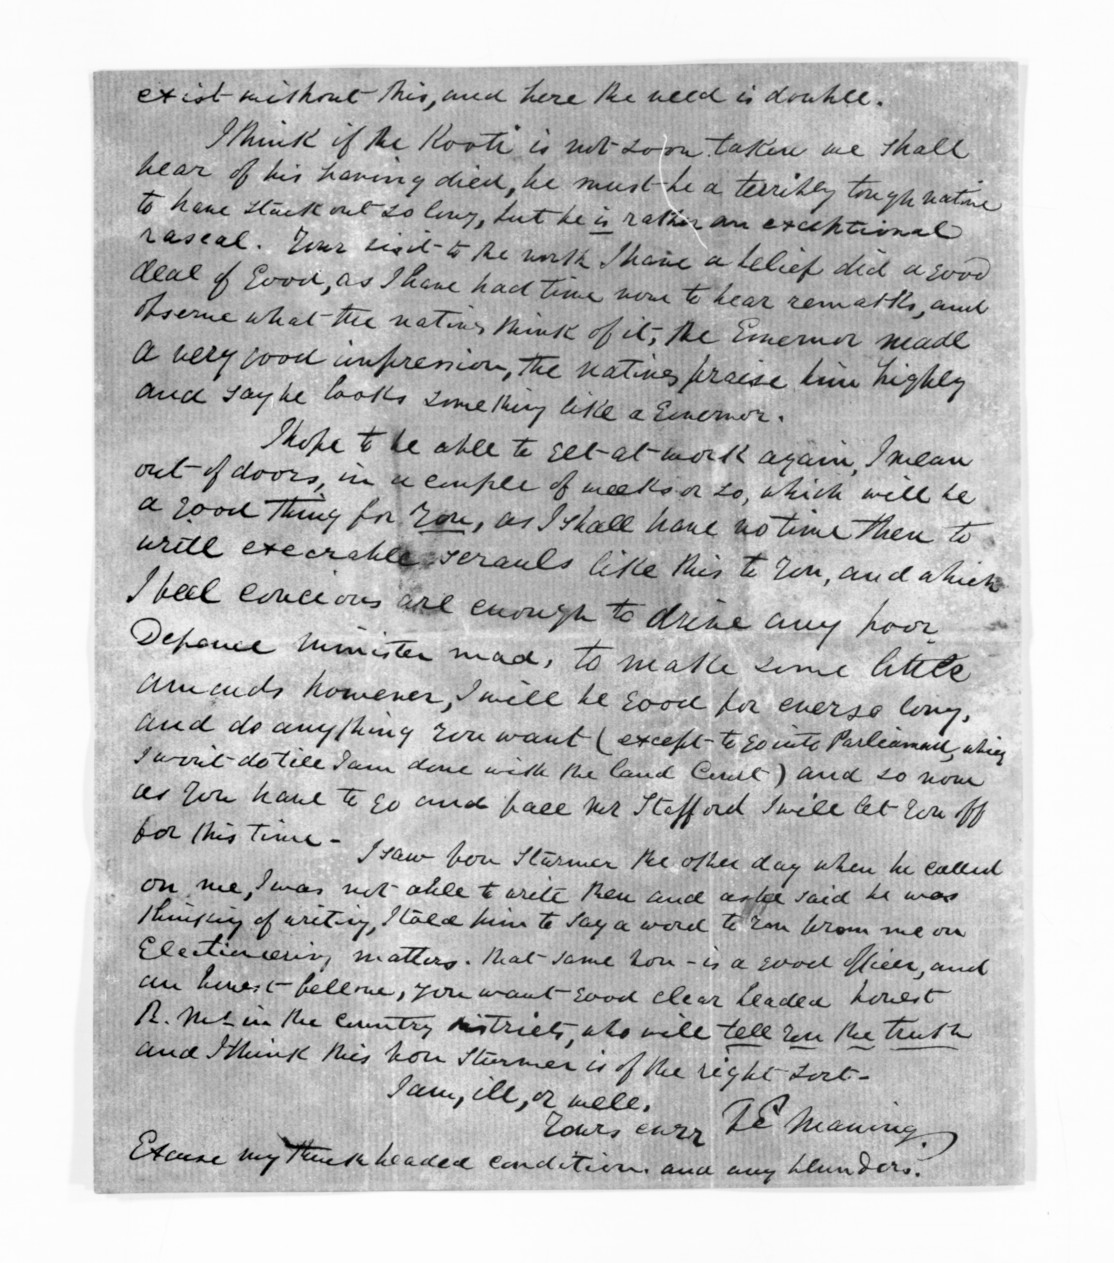 exist without this, and here the need is double.
I think if the Kooti is not soon taken we shall
hear of his having died, he must be a terribly tough native
to have stuck out so long, but he is rather an exceptional
rascal. Your visit to the north I have a belief did a good
deal of Good, as I have had time now to hear remarks, and
observe what the natives think of it, the Governor made
a very good impression, the natives praise him highly
and say he looks something like a Governor.
I hope to be able to get at work again, I mean
out of doors, in a couple of weeks or so, which will be
a good thing for You, as I shall have no time then to
write execrable scrauls like this to You, and which
I feel concious are enough to drive any poor
Defence minister mad, to make some little
amends however, I will be good for ever so long,
and do anything You want (except to go into Parliament, which
I won't do till I am done with the Land Court) and so now
as You have to go and face Mr Stafford I will let You off
for this time -
I saw Von Sturmer the other day when he called
on me, I was not able to write then and as he said he was
thinking of writing, I told him to say a word to You from me on
Electioneering matters. that same Von - is a good officer, and
an honest fellow, you want good clear headed honest
R. Mts in the country districts, who will tell You the truth
and I think this Von Sturmer is of the right sort -
I am, ill, or well,
Yours ever F E Maning.
Excuse my thick headed condition. and any blunders.